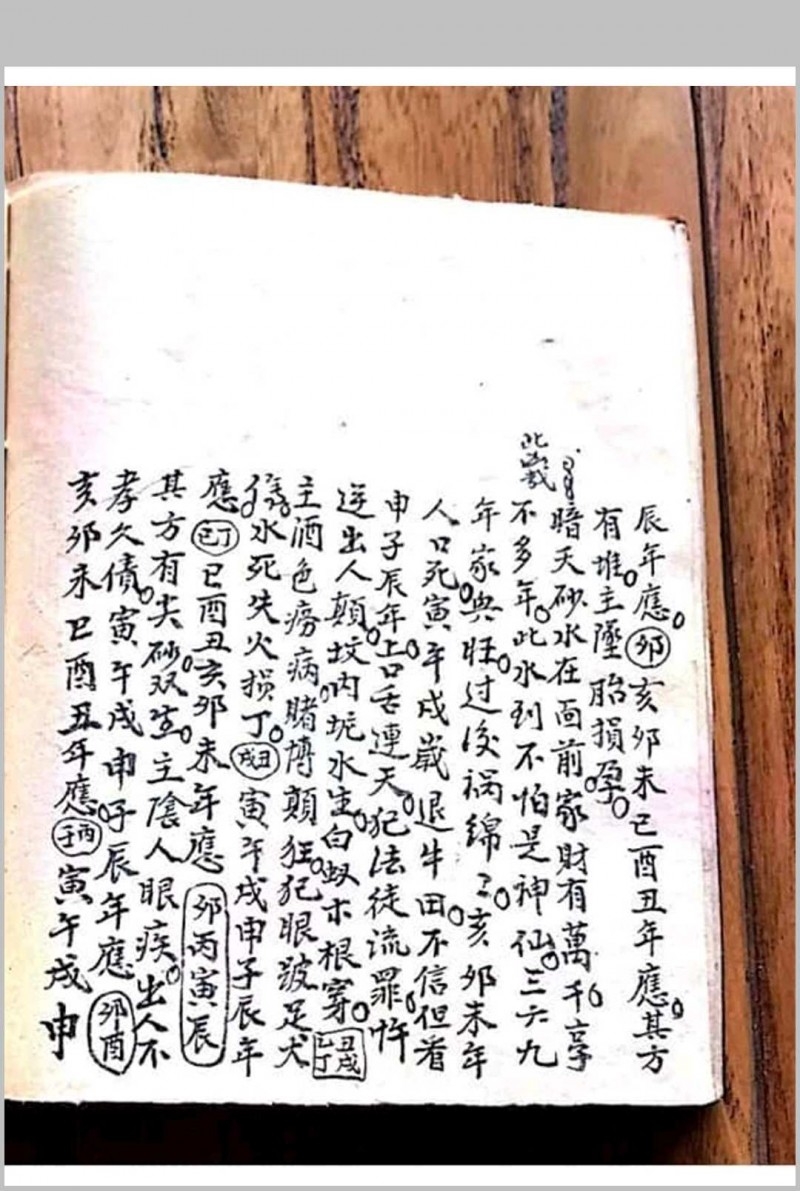 辰年應。卯亥卯未巳酉丑年應。其方
有堆。主墜胎損孕。
暗天砂水在面前家財有萬千。享
不多年。此水到不怕是神仙。三六九
年家興旺。过後祸綿〻。亥卯未年
人口死。寅午戌歲退牛田。不信但看
申子辰年上。口舌連天。犯法徒流罪。忤
逆出人顛。坟内坭水生。白蚁木根穿。丑戌
主酒色痨病賭博顛狂。犯眼跛足犬
傷。水死失火损丁。丑戌寅午戌申子辰年
應巳丁巳酉丑亥卯未年應卯丙寅辰
其方有尖砂双生。主陰人眼疾。出人不
孝欠債。寅午戌申子辰年應卯酉
亥卯未巳酉丑年應。丙寅午戌申